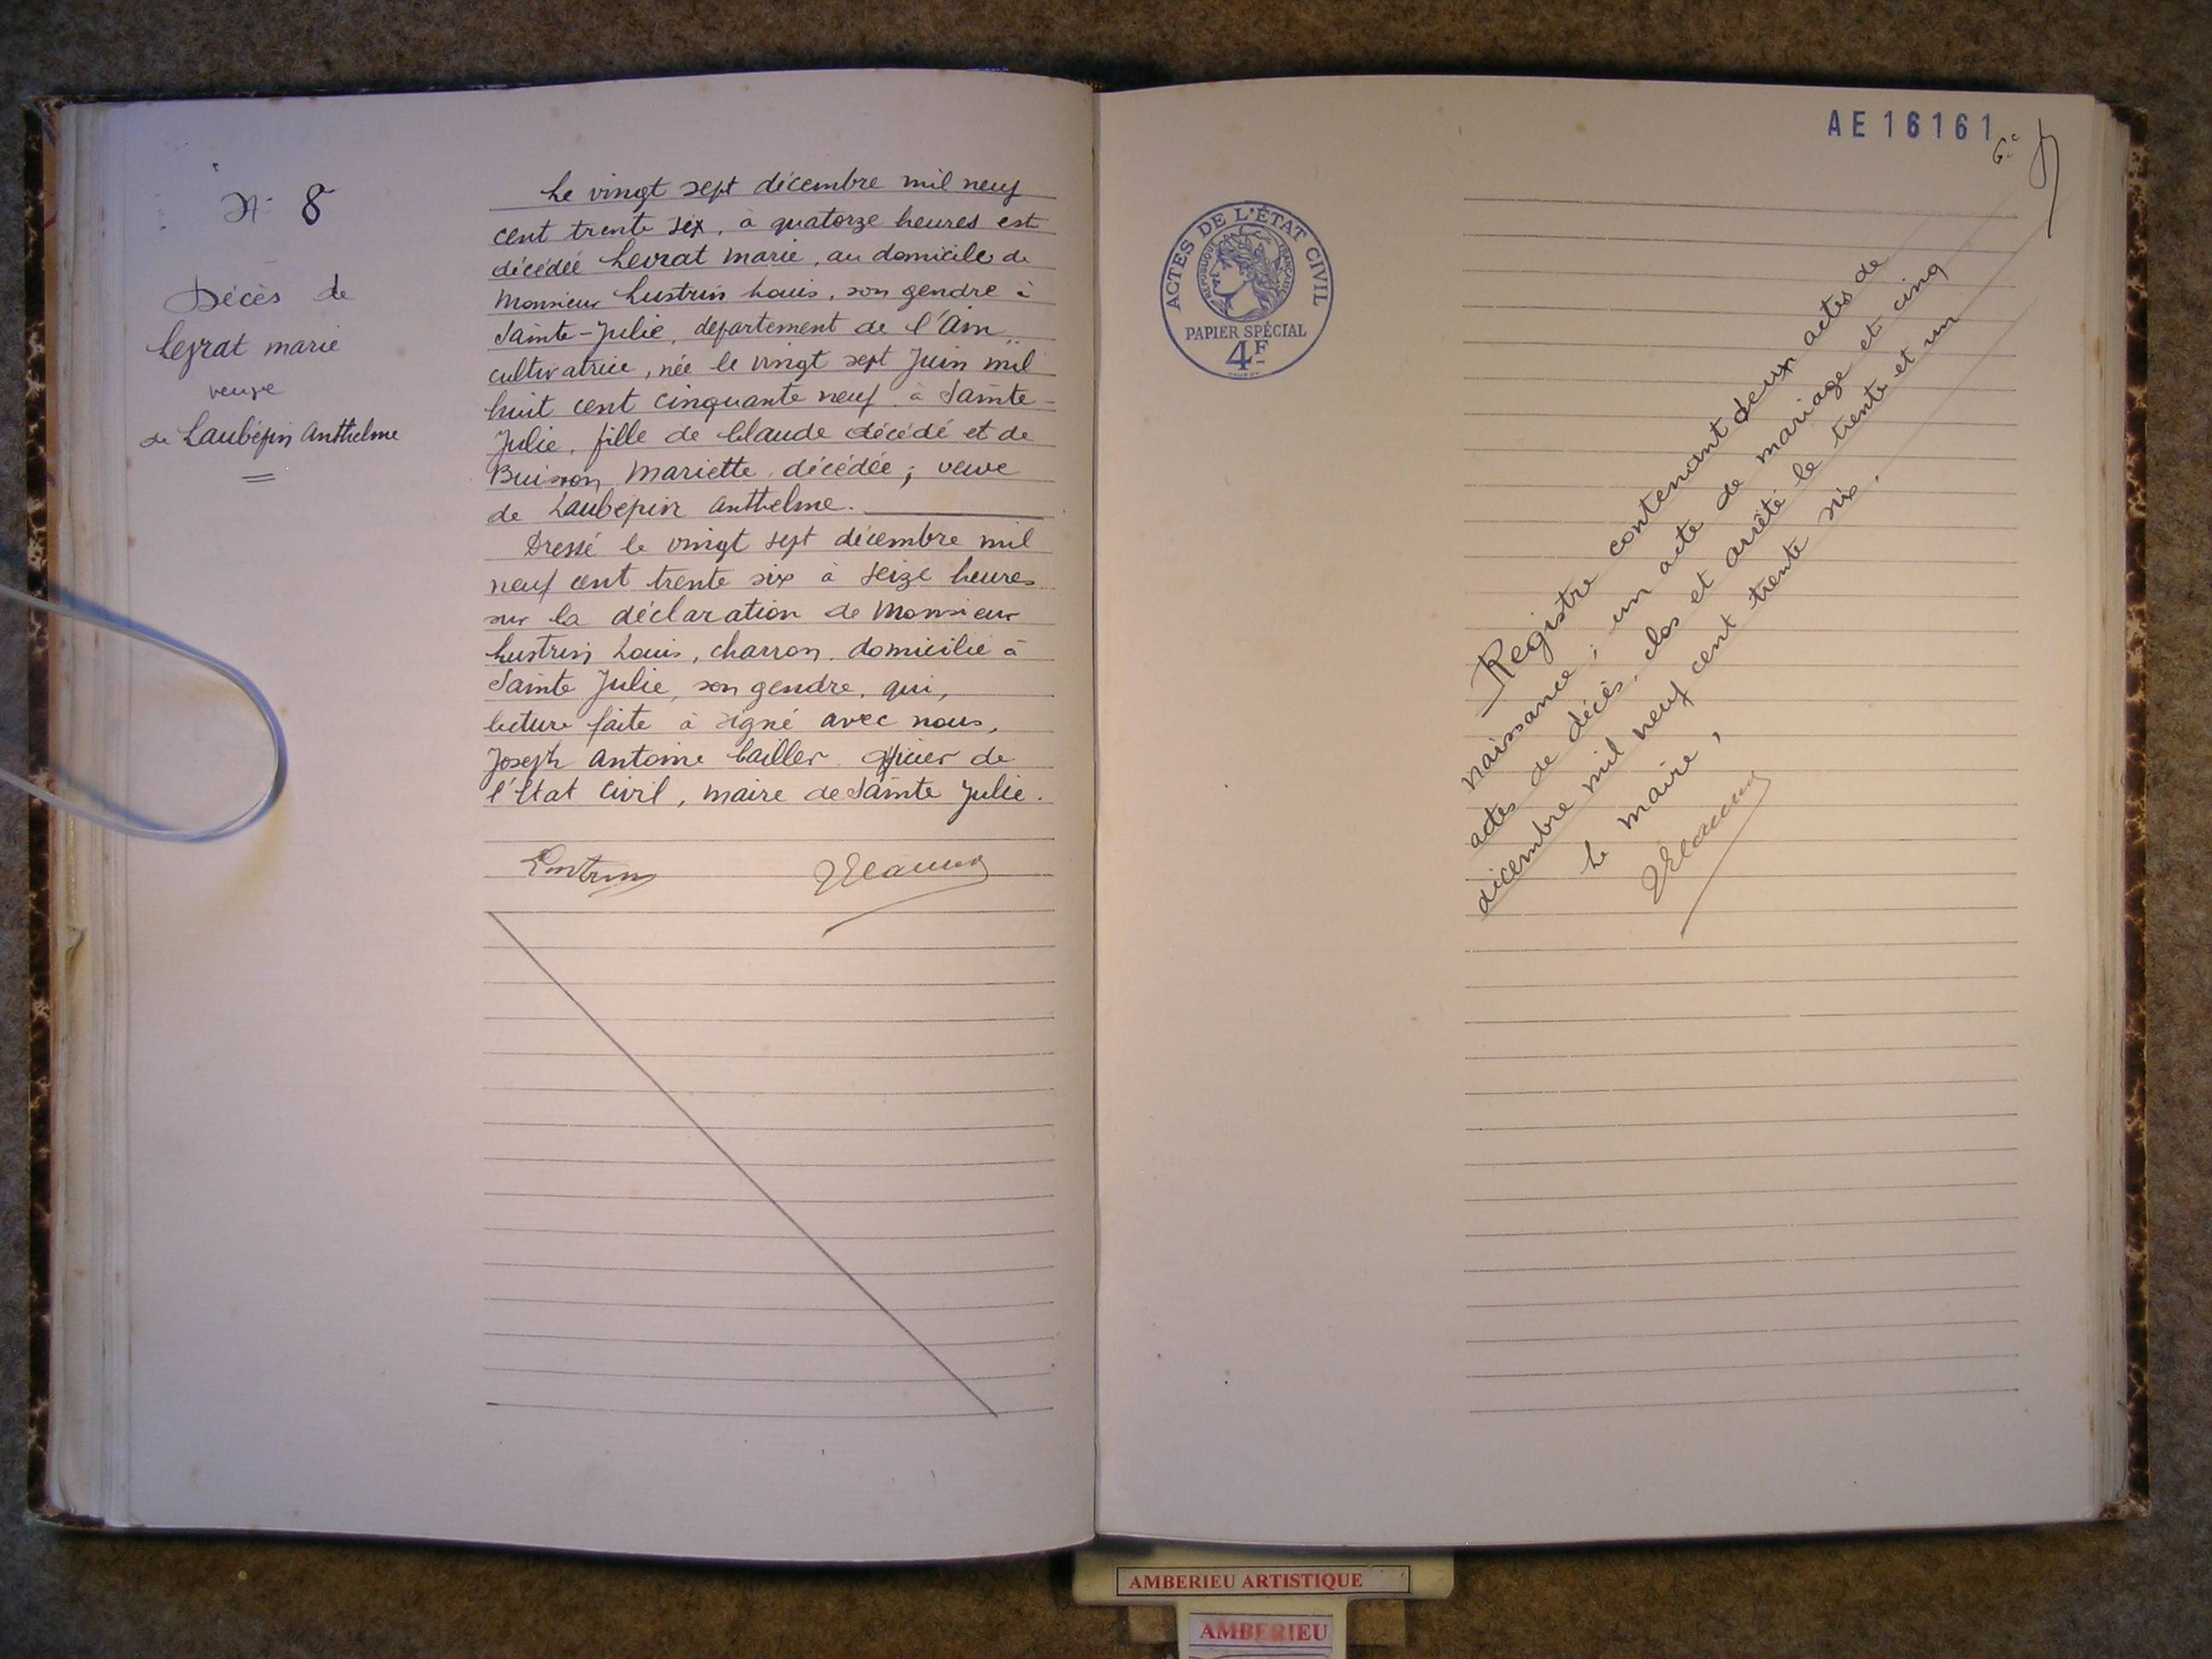 N° 8
Décès de
Levrat marie
veuve
de Laubépin Anthelme
Le vingt sept décembre mil neuf
cent trente six, à quatorze heures est
décédée Levrat marie, au domicile de
Monsieur Lustrin Louis, son gendre à
Sainte-Julie, département de l'Ain,
cultivatrice, née le vingt sept Juin mil
huit cent cinquante neuf à Sainte-
Julie, fille de Claude décédé et de
Buisson Mariette décédée ; veuve
de Laubépin Anthelme.
Dressé le vingt sept décembre mil
neuf cent trente six à seize heures
sur la déclaration de Monsieur
Lustrin Louis, charron, domicilié à
Sainte Julie, son gendre, qui,
lecture faite à signé avec nous,
Joseph Antoine Cailler officier de
l'Etat Civil, maire de Sainte Julie.
Lustrin
AE16161
6e
ACTES DE L'ÉTAT CIVIL
RÉPUBLIQUE FRANÇAISE
PAPIER SPÉCIAL
4F
Registre contenant deux actes de
naissance ; un acte de mariage et cinq
actes de décès, clos et arrêté le trente et un
décembre mil neuf cent trente six.
Le maire,
AMBERIEU ARTISTIQUE
AMBERIEU